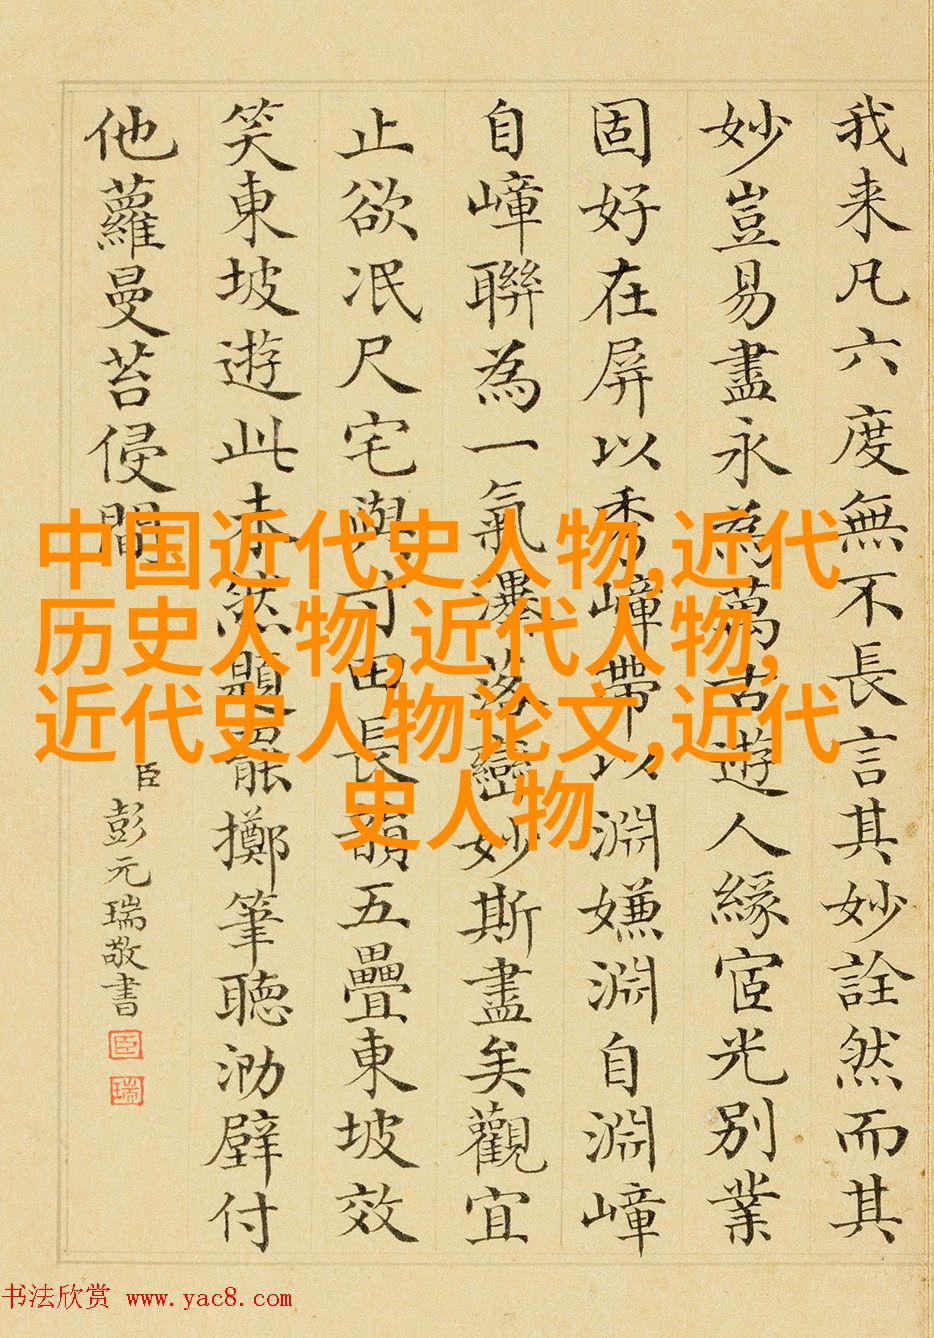 我来凡六度無不長言其妙詮然而其
妙豈易盡永為萬古遊人緣宦光別業
固好在屏以秀嶂帶以淵嫌淵自淵嶂
自嶂聯為一氣瀑落巒妙斯盡矣觀宜
止欲泯尺宅與寸田長韻五疊東坡效
笑東坡遊此未然題罷擲筆聽泐壁付
他蘿曼苔侵閒
臣彭元瑞敬書
臣
瑞
中国近代史人物,近代
历史人物,近代人物,
近代史人物论文,近代
史人物
书法欣赏 www.yac8.com